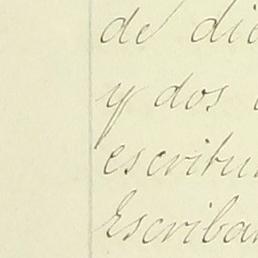 de die
y dos
escritu
Escriba